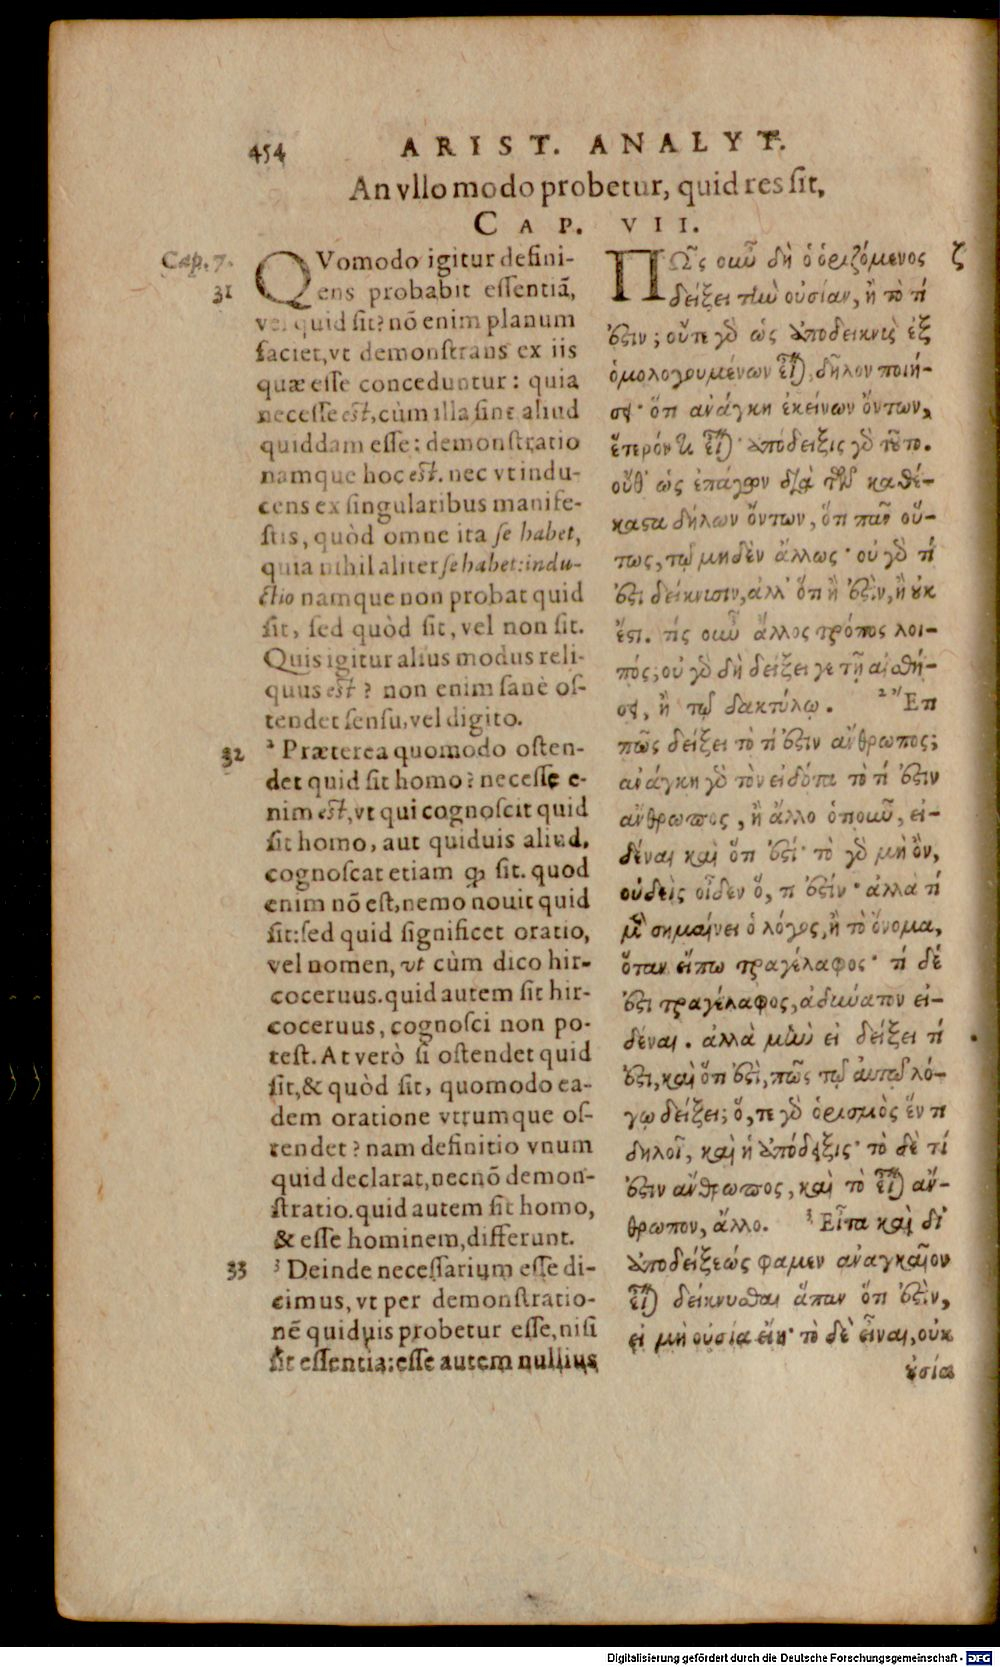 454 ARIST. ANALYT.
An vllo modo probetur, quid res sit,
CAP. VII.
Cap. 7.
31
QVomodo igitur defini-
ens probabit essentiã,
vel quid sit? nõ enim planum
faciet, vt demonstrans ex iis
quæ esse conceduntur: quia
necesse est, cùm illa sint aliud
quiddam esse: demonstratio
namque hoc est. nec vt indu-
cens ex singularibus manife-
stis, quòd omne ita se habet,
quia nihil aliter se habet: indu-
ctio namque non probat quid
sit, sed quòd sit, vel non sit.
Quis igitur alius modus reli-
quus est? non enim sanè os-
tendet sensu, vel digito.
32
² Præterea quomodo osten-
det quid sit homo? necesse e-
nim est, vt qui cognoscit quid
sit homo, aut quiduis aliud,
cognoscat etiam ꝙ sit. quod
enim nõ est, nemo nouit quid
sit: sed quid significet oratio,
vel nomen, vt cùm dico hir-
coceruus. quid autem sit hir-
coceruus, cognosci non po-
test. At verò si ostendet quid
sit, & quòd sit, quomodo ea-
dem oratione vtrumque os-
tendet? nam definitio vnum
quid declarat, necnõ demon-
stratio. quid autem sit homo,
& esse hominem, differunt.
33
³ Deinde necessarium esse di-
cimus, vt per demonstratio-
nẽ quiduis probetur esse, nisi
sit essentia: esse autem nullius
ΠΩ͂ς οὖν δὴ ὁ ὁριζόμενος
ζ
δείξει τὴν οὐσίαν, ἢ τὸ τί
ἐστιν; οὔτε γὸ ὡς ἀποδεικνὺς ἐξ
ὁμολογουμένων εἶ), δῆλον ποιή-
σει· ὅτι ἀνάγκη ἐκείνων ὄντων,
ἕτερόν τι εἶ)· ἀπόδειξις γὸ τοῦτο.
οὔθ' ὡς ἐπάγων διὰ τῶν καθέ-
καστα δήλων ὄντων, ὅτι πᾶν οὕ-
τως, τῷ μηδὲν ἄλλως· οὐ γὸ τί
ἐστι δείκνυσιν, ἀλλ' ὅτι ἢ ἐστὶν, ἢ ȣκ
ἔστι. τίς οὖν ἄλλος τρόπος λοι-
πός; οὐ γὸ δὴ δείξει γε τῇ αἰσθή-
σει, ἢ τῷ δακτύλῳ. ² Ἔτι
πῶς δείξει τὸ τί ἐστιν ἄνθρωπος;
ἀνάγκη γὸ τὸν εἰδότα τὸ τί ἐστιν
ἄνθρωπος, ἢ ἄλλο ὁποῦν, εἰ-
δέναι καὶ ὅτι ἐστί· τὸ γὸ μὴ ὂν,
οὐδεὶς οἶδεν ὅ, τι ἐστίν· ἀλλὰ τί
μὲν σημαίνει ὁ λόγος, ἢ τὸ ὄνομα,
ὅταν εἴπω τραγέλαφος· τί δέ
ἐστι τραγέλαφος, ἀδύνατον εἰ-
δέναι. ἀλλὰ μὴν εἰ δείξει τί
ἐστι, καὶ ὅτι ἐστὶ, πῶς τῷ αὐτῷ λό-
γῳ δείξει; ὅ, τε γὸ ὁρισμὸς ἕν τι
δηλοῖ, καὶ ἡ ἀπόδειξις· τὸ δὲ τί
ἐστιν ἄνθρωπος, καὶ τὸ εἶ) ἄν-
θρωπον, ἄλλο. ³ Εἶτα καὶ δι'
ἀποδείξεώς φαμεν ἀναγκαῖον
εἶ) δείκνυσθαι ἅπαν ὅτι ἐστὶν,
εἰ μὴ οὐσία εἴη· τὸ δὲ εἶναι, οὐκ
ȣσία
Digitalisierung gefördert durch die Deutsche Forschungsgemeinschaft - DFG